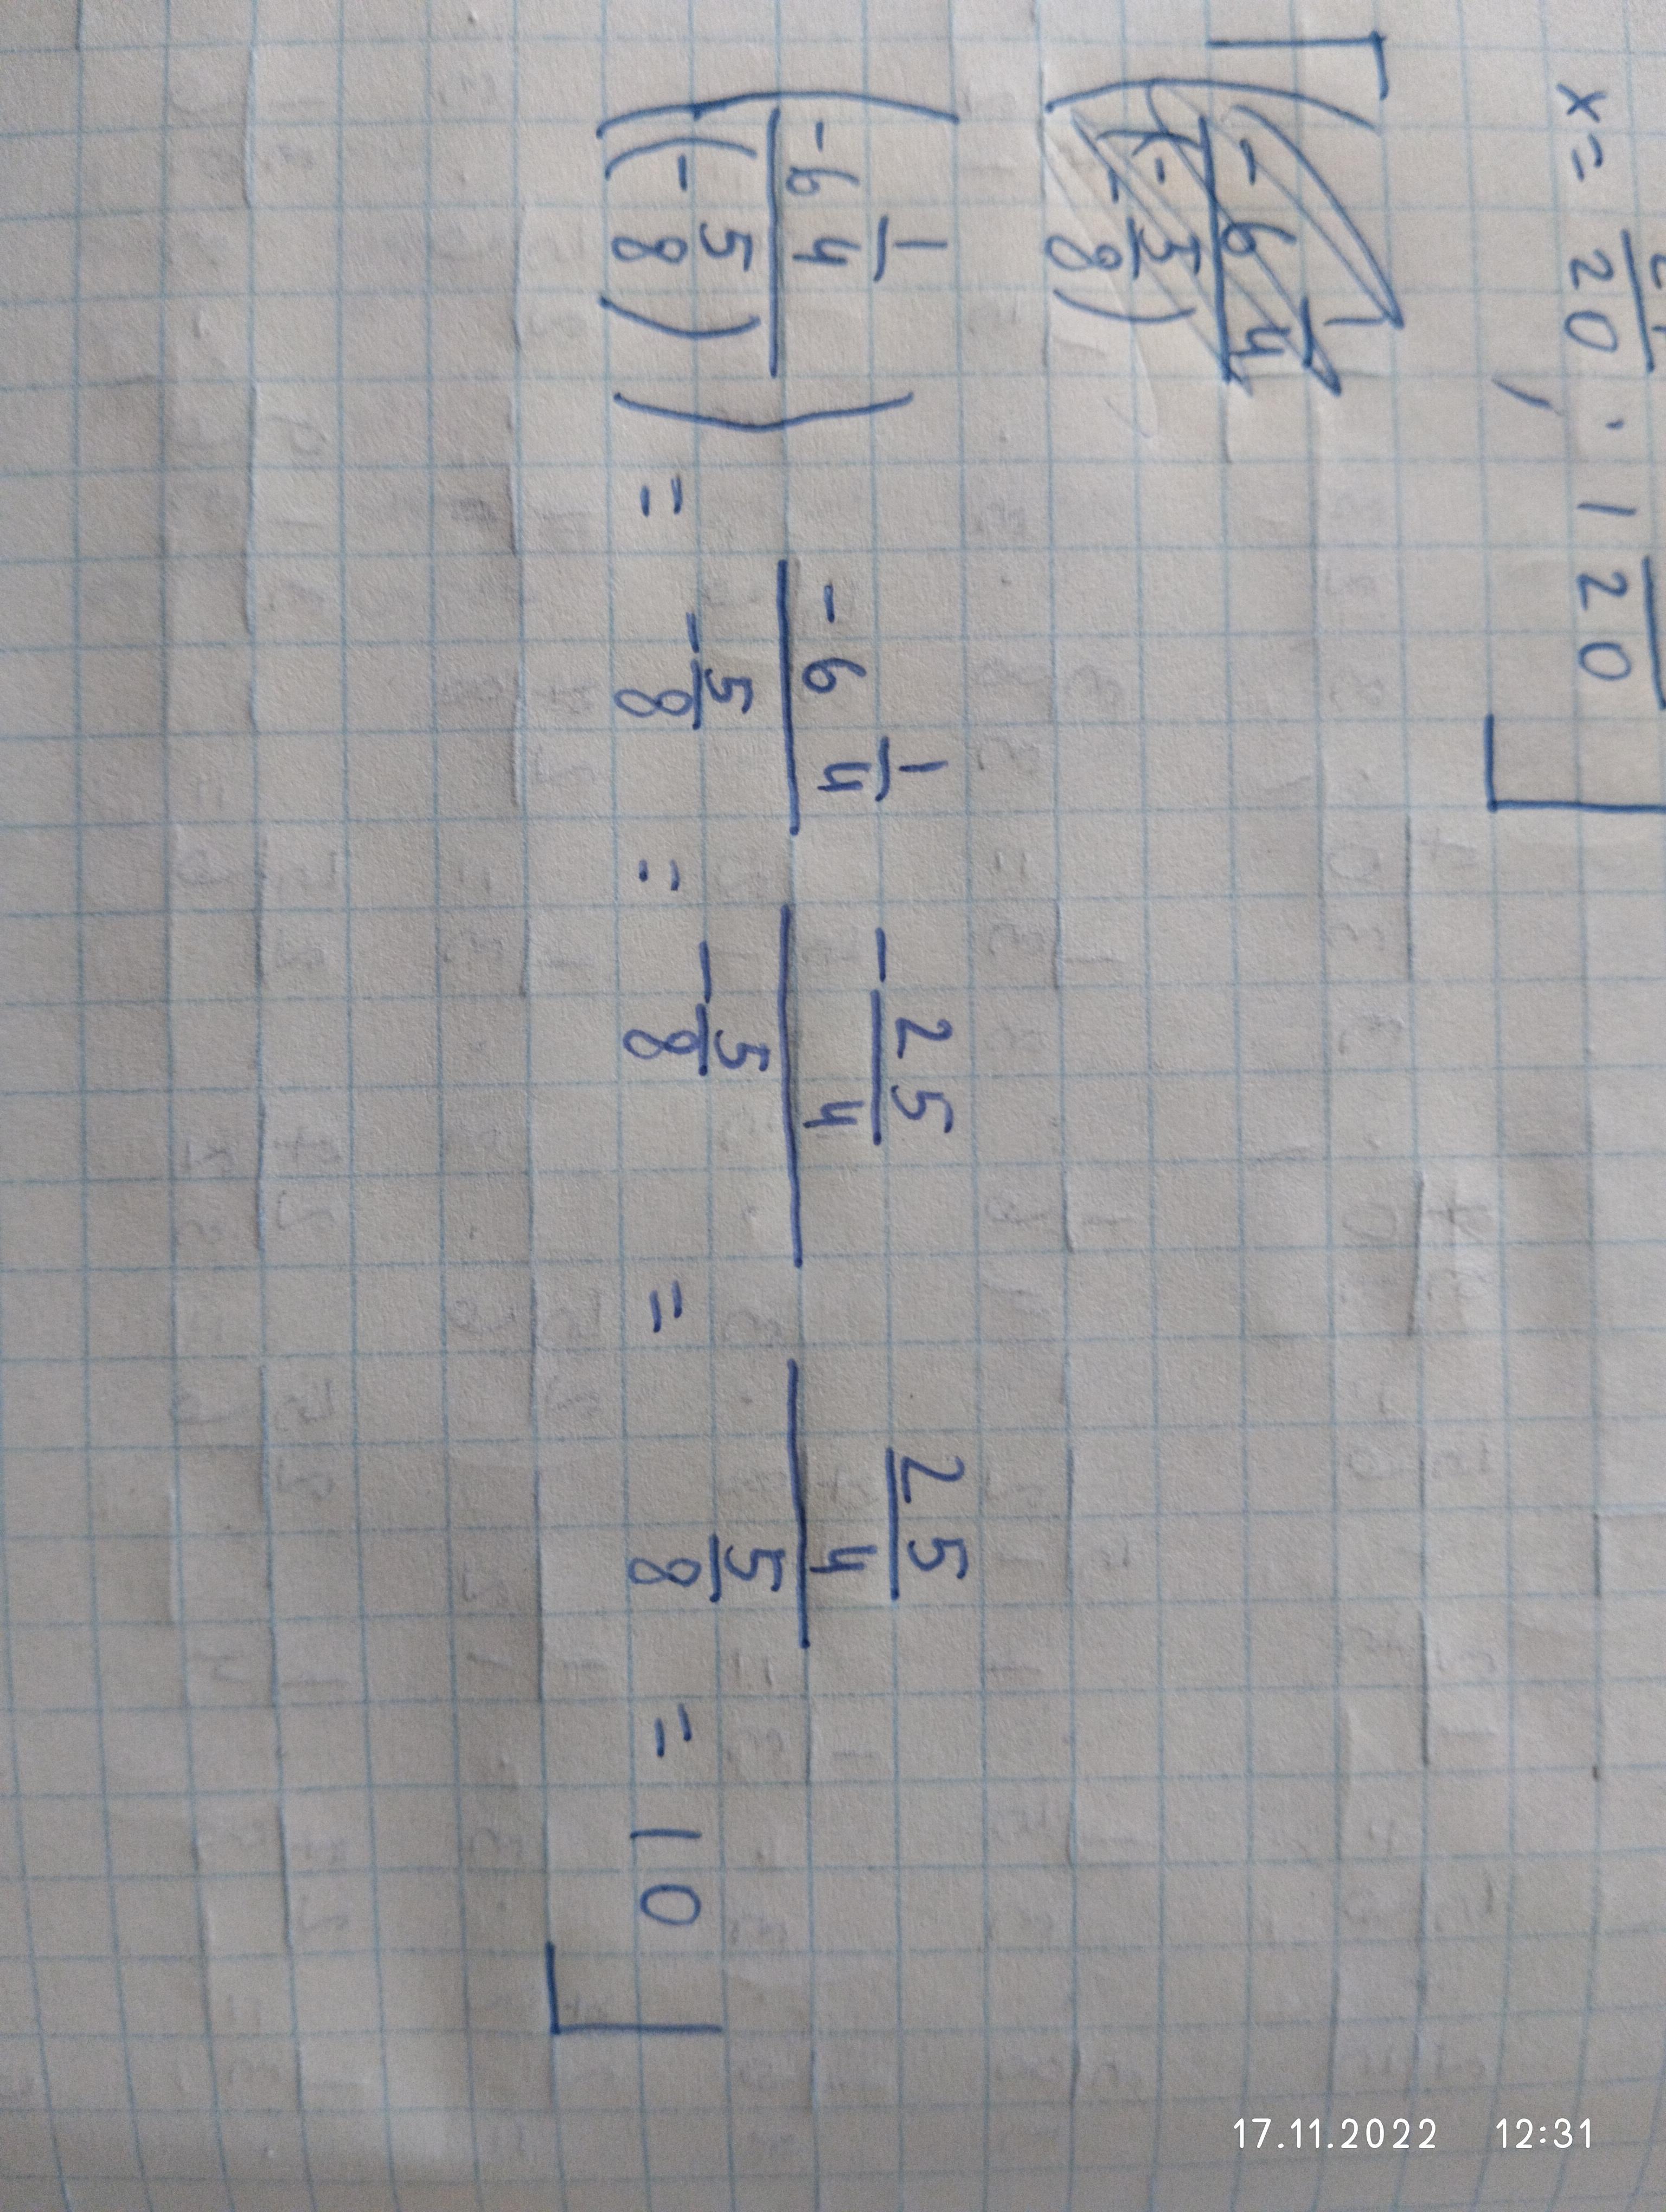 x = 20 ; 1 20
( -6 1/4 / (-5/8) ) = -6 1/4 / -5/8 = -25/4 / -5/8 = 25/4 / 5/8 = 10
17.11.2022 12:31